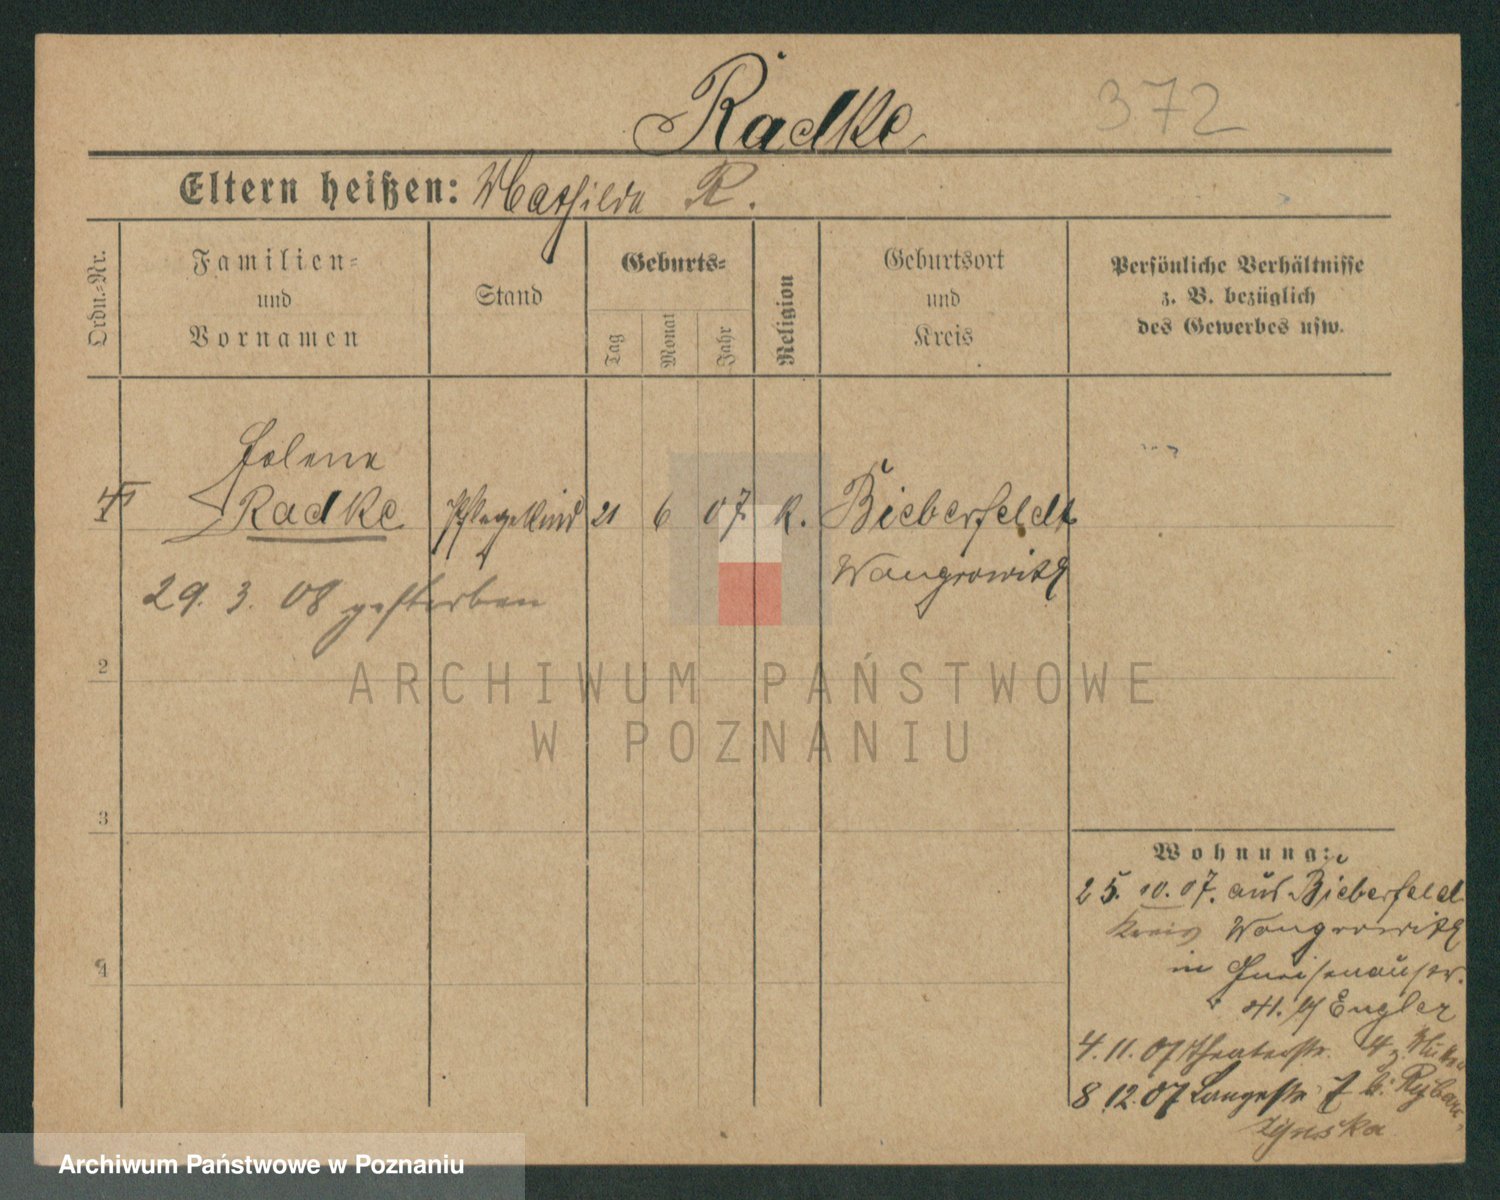 Radke
372
Eltern heißen: Mathilde R.
Ordn.-Nr.
Familien-
und
Vornamen
Stand
Geburts-
Tag
Monat
Jahr
Religion
Geburtsort
und
Kreis
Persönliche Verhältnisse
z. B. bezüglich
des Gewerbes usw.
Helene
Radke Pflegekind 21 6 07. k. Bieberfeldt
Wongrowitz
29. 3. 08 gestorben
2
3
4
Wohnung:
25. 10. 07. aus Bieberfeld
Kreis Wongrowitz
in Gneisenaustr.
41. Engler
4. 11. 07 Theaterstr. 4
8 12. 07 Langestr 7 b.
ARCHIWUM PAŃSTWOWE
W POZNANIU
Archiwum Państwowe w Poznaniu